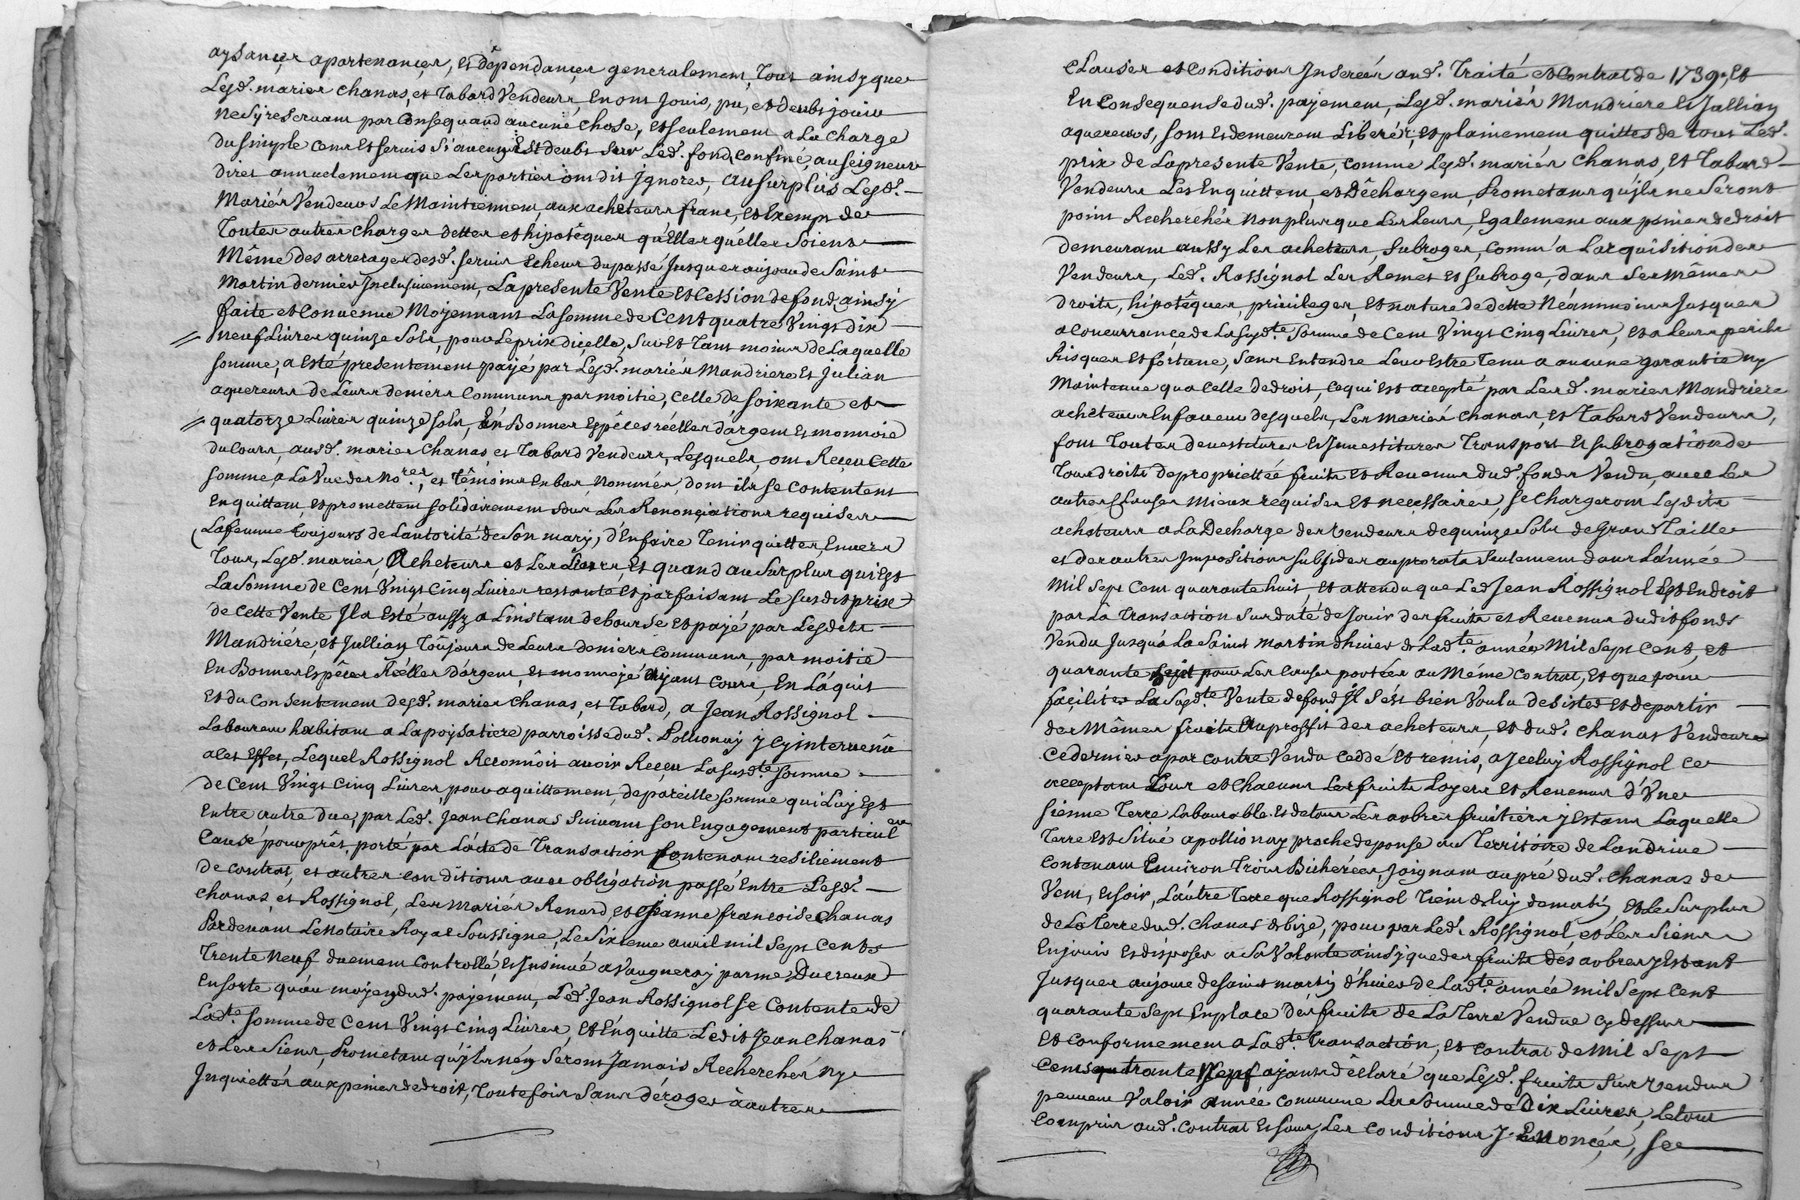 aysances apartenances, et dêpendances generalement, Tout ainsy que
Lesd. mariés chanas, et Tabard Vendeurs En ont Jouis, pu, et deubs jouir
Ne sy reservant par Consequand aucune chose, et seulement a La charge
du simple cens et servis si aucun Est deubt sur Led. fond confiné, au seigneur
diret annuelement que Les parties ont dit Ignorer, au surplus Lesd.
Mariés Vendeurs Le Maintiennent, aux acheteurs franc, et Exempt de
Toutes autres charges dettes et hipotêques qu'Elles quélles soient
Même des arrerages desd. servis Echeus du passé Jusques aujour de Saint
Martin dernier Inclusivement, La presente Vente et Cession de fond, ainsy
faite et Convenue Moyennant La somme de Cent quatre Vingt dix
neuf Livres quinze sols, pour Le prix diçelle, sur et Tant moins de Laquelle
somme, a Esté presentement payé par Lesd. mariés Mandriere et Julian
aquereurs de Leurs deniers Communs par moitié, Celle de soixante et
quatorze Livres quinze sols, En Bonnes Espêces réélles d'argent et monnoie
du Cours, ausd. mariés Chanas, et Tabard Vendeurs, Lesquels, ont Reçeu Cette
somme a La Vue des No.res, et Têmoins En bas Nommés, dont ils se Contentent
En quittent, et promettent solidairement sous Les Renonçiations requises
(La femme toujours de Lautorité de son mary, d'En faire Tenir quittes, Envers
Tous, Lesd. mariés, Acheteurs et Les Leurs, Et quand au surplus qui Est
La somme de Cent Vingt Cinq Livres restante et parfaisant Le susdit prix
de Cette Vente Jl a Esté aussy a Linstant debourse et payé par Lesdits
Mandriére, et Jullian Toûjours de Leurs deniers Communs, par moitié
En Bonnes Espêces Réelles D'argent, et monnoyé ayant Cours, En L'aquit
Et du Consentement desd. mariés Chanas, et Tabard, a Jean Rossignol
Laboureur habitant a La poysatiere parroisse dud. Pollionay y Cy intervenû
a Cet Effet, Lequel Rossignol Reconnôit avoir Reçeu La susd.te somme
de Cent Vingt Cinq Livres, pour aquittement, de pareille somme qui Luy Est
Entre autre due, par Led. Jean Chanas suivant son Engagement particulier
Causé pour prêt, porté par L'acte de Transaction Contenant resiliement
de contrat, et autres conditions avec obligation passé Entre Lesd.
Chanas, et Rossignol, Les Mariés Renard, et Jeanne françoise Chanas
Pardevant Le Notaire Royal Soussigné, Le Sixieme avril mil Sept Cents
Trente Neuf duement Controllé, et Jnsinué a Vaugneray par me Ducreux
En sorte qu'au moyen dud. payement, Led. Jean Rossignol se Contente de
Lad.te somme de Cent Vingt Cinq Livres, et En quitte Ledit Jean Chanas
et Les siens, Prometant qu'jls n'en seront Jamais Recherchés Ny
Jnquiettés aux peines de droit, Toutefois Sans déroger à autres
Clauses et conditions Jnserées aud. Traité et Contrat de 1739, Et
En Consequense dud. payement, Lesd. mariés Mandriere et Jullian
aquereurs, sont et demeurent Liberés, et plainement quittes de tout Led.
prix de La presente Vente, comme Lesd. mariés Chanas, Et Tabard
Vendeurs Les En quittent, et dêchargent, Prometant qu'jls ne Seront
point Recherchés Non plus que Les Leurs, Egalement aux peines de droit
demeurant aussy Les acheteurs, subroges, comm'a L'arquîsition des
Vendeurs, Led. Rossignol Les Remet et subroge, dans Ses mêmes
droits, hipotêques, privileges, et nature de dette Néanmoins Jusques
a Concurrance de La susd.te somme de Cent Vingt Cinq Livres, et a Leurs perils
Risques et fortune, Sans Entendre Leur Estre Tenu a aucune garantie ny
Maintenue qu'a Celle de droit, Ce qui Est accepté, par Lesd. mariés Mandriere
acheteurs En faveur desquels, Les mariés Chanas, et Tabard Vendeurs,
font Toutes devestitures et Jnvestitures Transport et subrogation de
Tous droits de propriettée fruits et Revenus dud. fonds Vendu, avec Les
autres Clauses mieux requises et necessaires, se Chargeront Lesdits
acheteurs a La Decharge des Vendeurs de quinze sols de Grand Taille
et des autres Impositions subsides au prorata seulement dans L'année
Mil Sept Cent quarante huit, et attendu que Led Jean Rossignol Est En droit
par La Transaction Surdaté de Jouir des fruits et Revenus dudit fonds
Vendu Jusqu'a La Saint Martin d'hiver de Lad.te année Mil Sept Cent, et
quarante sept pour Les causes portées au Même Contrat, Et que pour
façiliter La susd.te Vente de fond Jl S'est bien Voulu desister et departir
des Mêmes fruits au proffit des acheteurs, et dud. Chanas Vendeurs
Ce dernier a par Contre Vendu Ceddé et remis, a Jceluy Rossignol Ce
acceptant Tous et Chacuns Les fruits Loyers et Revenus d'Une
sienne Terre Labourable et de tous Les arbres fruitiers y Estant Laquelle
Terre Est Situé a pollionay proche de ponse au Territoire de Landrive
Contenant Environ Trois Bicherées, Joignant au pré dud. Chanas de
Vent, et soir, L'autre Terre que Rossignol Tient de luy de matin et Le Surplus
de La Terre dud. Chanas de bize, pour par Led. Rossignol et Les Siens
En jouir et disposer a Sa Volonté ainsy que des fruits dés arbres y Estant
Jusques au jour de saint martin d'hiver de Lad.te année mil Sept Cent
quarante Sept En place des fruits de La Terre Vendue cy Dessus
Et Conformement a Lad.te Transaction, et Contrat de Mil Sept
Cents trante Neuf, ajant dêclaré que Lesd. fruits sus Vendus
peuvent Valoir année Commune La Somme de Dix Livres, Le tout
Compris aud. Contrat et sous Les Conditions y Enoncées, se